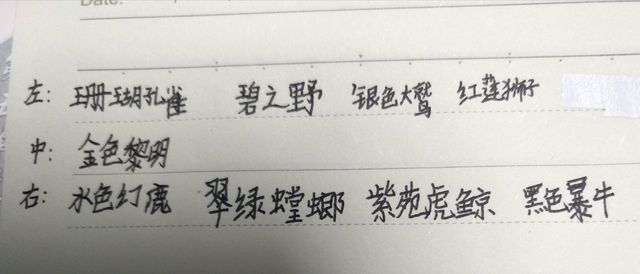 Date:
左: 珊瑚孔雀 碧之野 银色大鹫 红莲狮子
中: 金色黎明
右: 水色幻鹿 翠绿螳螂 紫苑虎鲸 黑色暴牛